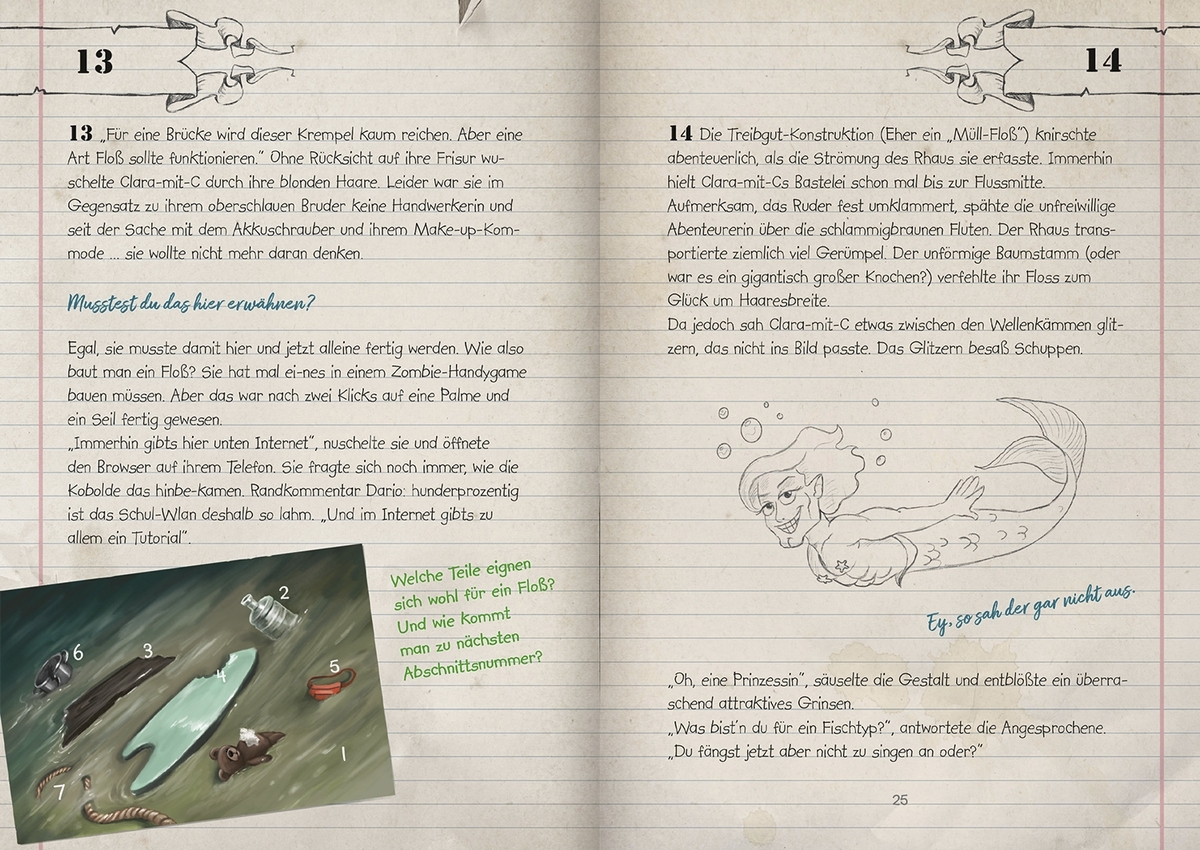 13
13 „Für eine Brücke wird dieser Krempel kaum reichen. Aber eine
Art Floß sollte funktionieren.“ Ohne Rücksicht auf ihre Frisur wu-
schelte Clara-mit-C durch ihre blonden Haare. Leider war sie im
Gegensatz zu ihrem oberschlauen Bruder keine Handwerkerin und
seit der Sache mit dem Akkuschrauber und ihrem Make-up-Kom-
mode ... sie wollte nicht mehr daran denken.
Musstest du das hier erwähnen?
Egal, sie musste damit hier und jetzt alleine fertig werden. Wie also
baut man ein Floß? Sie hat mal ei-nes in einem Zombie-Handygame
bauen müssen. Aber das war nach zwei Klicks auf eine Palme und
ein Seil fertig gewesen.
„Immerhin gibts hier unten Internet“, nuschelte sie und öffnete
den Browser auf ihrem Telefon. Sie fragte sich noch immer, wie die
Kobolde das hinbe-kamen. Randkommentar Dario: hunderprozentig
ist das Schul-Wlan deshalb so lahm. „Und im Internet gibts zu
allem ein Tutorial“.
Welche Teile eignen
sich wohl für ein Floß?
Und wie kommt
man zu nächsten
Abschnittsnummer?
2
6
3
4
5
1
7
14
14 Die Treibgut-Konstruktion (Eher ein „Müll-Floß“) knirschte
abenteuerlich, als die Strömung des Rhaus sie erfasste. Immerhin
hielt Clara-mit-Cs Bastelei schon mal bis zur Flussmitte.
Aufmerksam, das Ruder fest umklammert, spähte die unfreiwillige
Abenteurerin über die schlammigbraunen Fluten. Der Rhaus trans-
portierte ziemlich viel Gerümpel. Der unförmige Baumstamm (oder
war es ein gigantisch großer Knochen?) verfehlte ihr Floss zum
Glück um Haaresbreite.
Da jedoch sah Clara-mit-C etwas zwischen den Wellenkämmen glit-
zern, das nicht ins Bild passte. Das Glitzern besaß Schuppen.
Ey, so sah der gar nicht aus.
„Oh, eine Prinzessin“, säuselte die Gestalt und entblößte ein überra-
schend attraktives Grinsen.
„Was bist'n du für ein Fischtyp?“, antwortete die Angesprochene.
„Du fängst jetzt aber nicht zu singen an oder?“
25